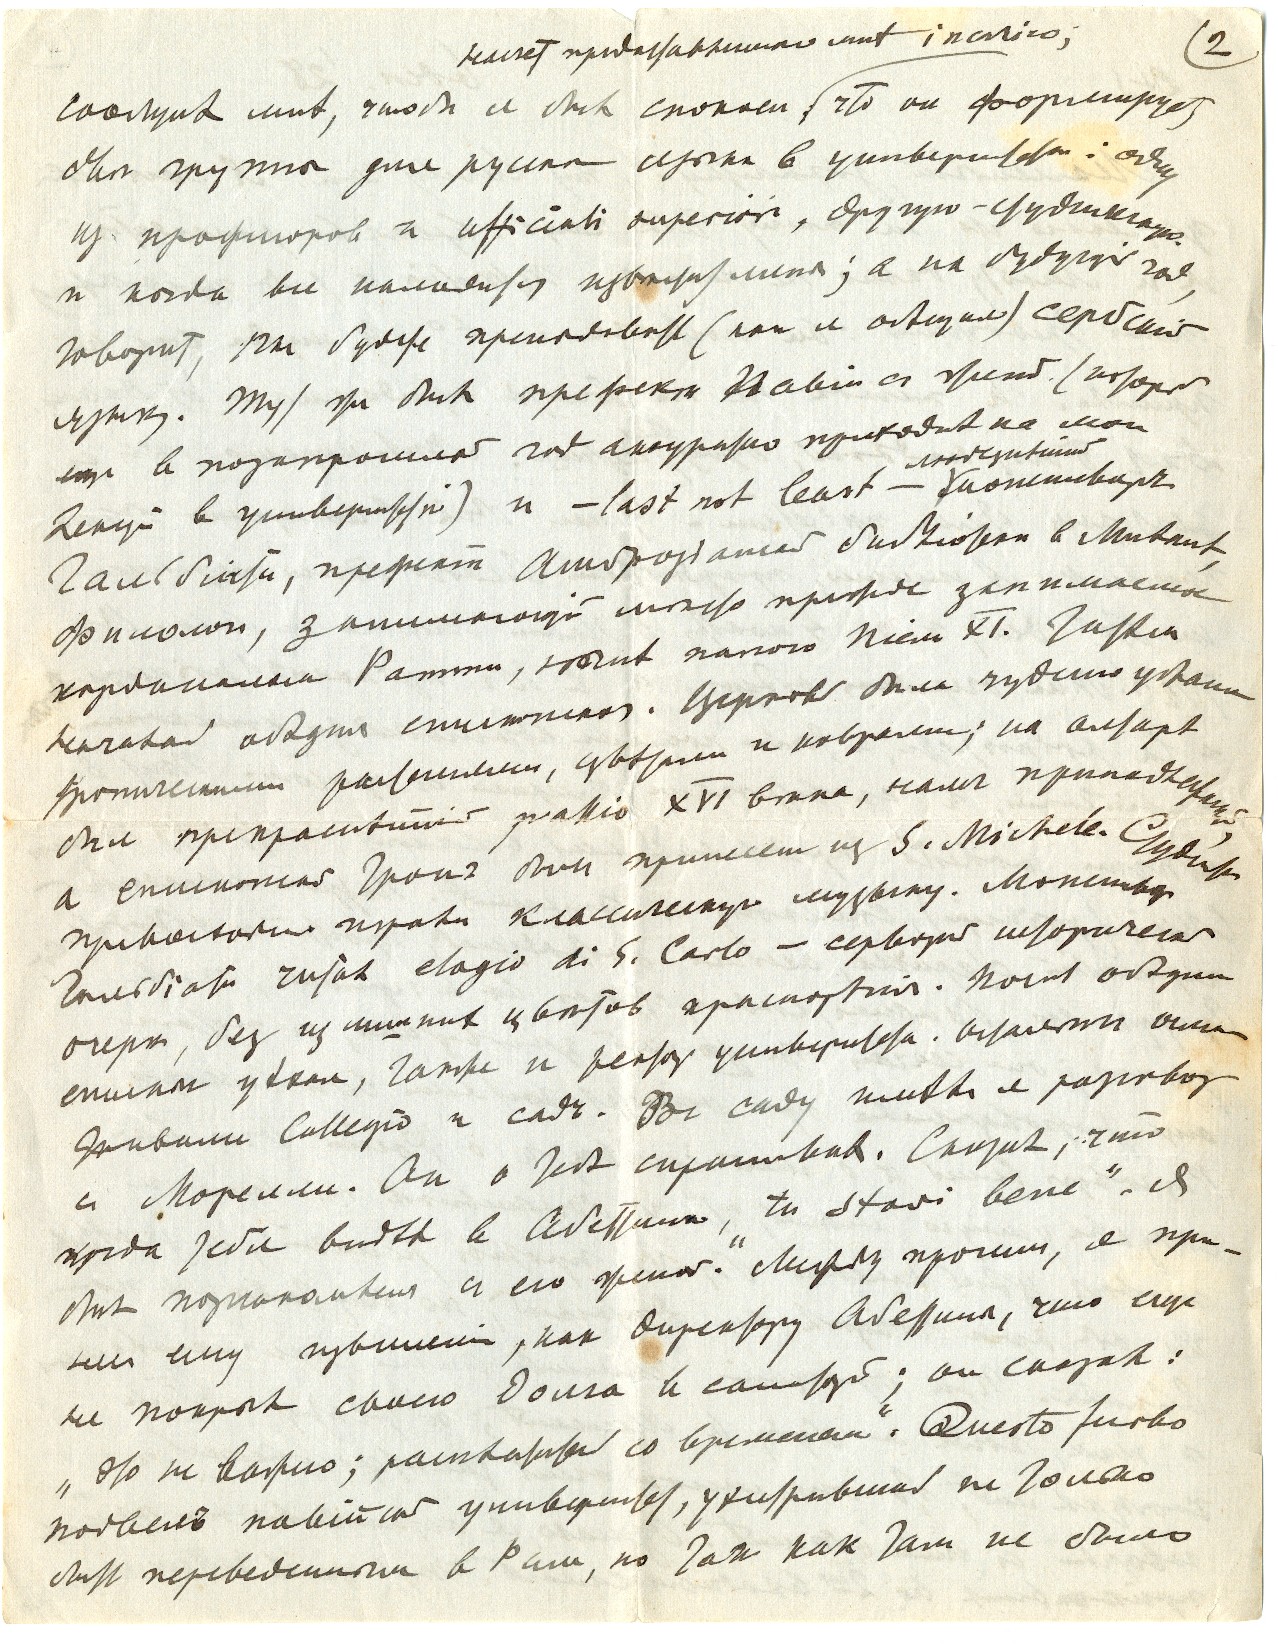 насчет предоставленного мнѣ incarico; (2
сообщил мнѣ, чтобы я был спокоен, что он формирует
двѣ группы для русскаго языка в университетѣ: одну
из профессоров и ufficiali superiori, другую – студенческую
и когда все наладится известит меня; а на будущій год,
говорит, Вы будете преподавать (как я обѣщал) сербскій
язык. Тут же был префект Павіи с женой (который
еще в позапрошлый год аккуратно приходил на мои
лекціи в университетѣ) и – last not least – любезнѣйшій монсиньор
Гальбіати, префект Амброзіанской библіотеки в Миланѣ,
филолог, занимающій мѣсто прежде занимаемое
кардиналом Ратти, потом папою Піем XI. Затѣм
началась обѣдня епископская. Церковь была чудно убрана
тропическими растеніями, цвѣтами и коврами; на алтарѣ
был прекраснѣйшій palio XVI вѣка, нам принадлежащій,
а епископскій трон был принесен из S. Michele. Студенты
превосходно играли классическую музыку. Монсиньор
Гальбіати читал elogio di S. Carlo – серьозный историческій
очерк, без излишних цвѣтов краснорѣчія. Послѣ обѣдни
епископ уѣхал, также и ректор университета. Остальные осматривали
Collegio и сад. Въ саду имѣл я разговор
с Морелли. Он о тебѣ спрашивал. Сказал, что
когда тебя видѣл в Абеттонѣ, "tu stavi bene". Я
был познакомлен с его женой. Между прочим, я при-
нес ему извиненія, как директору Абеттоне, что еще
не покрыл своего долга в санаторіи; он сказал:
„это не важно; расквитаетесь со временем". Questo furbo
подвел павійскій университет, ухитрившись не только
быть переведенным в Рим, но так как там не было